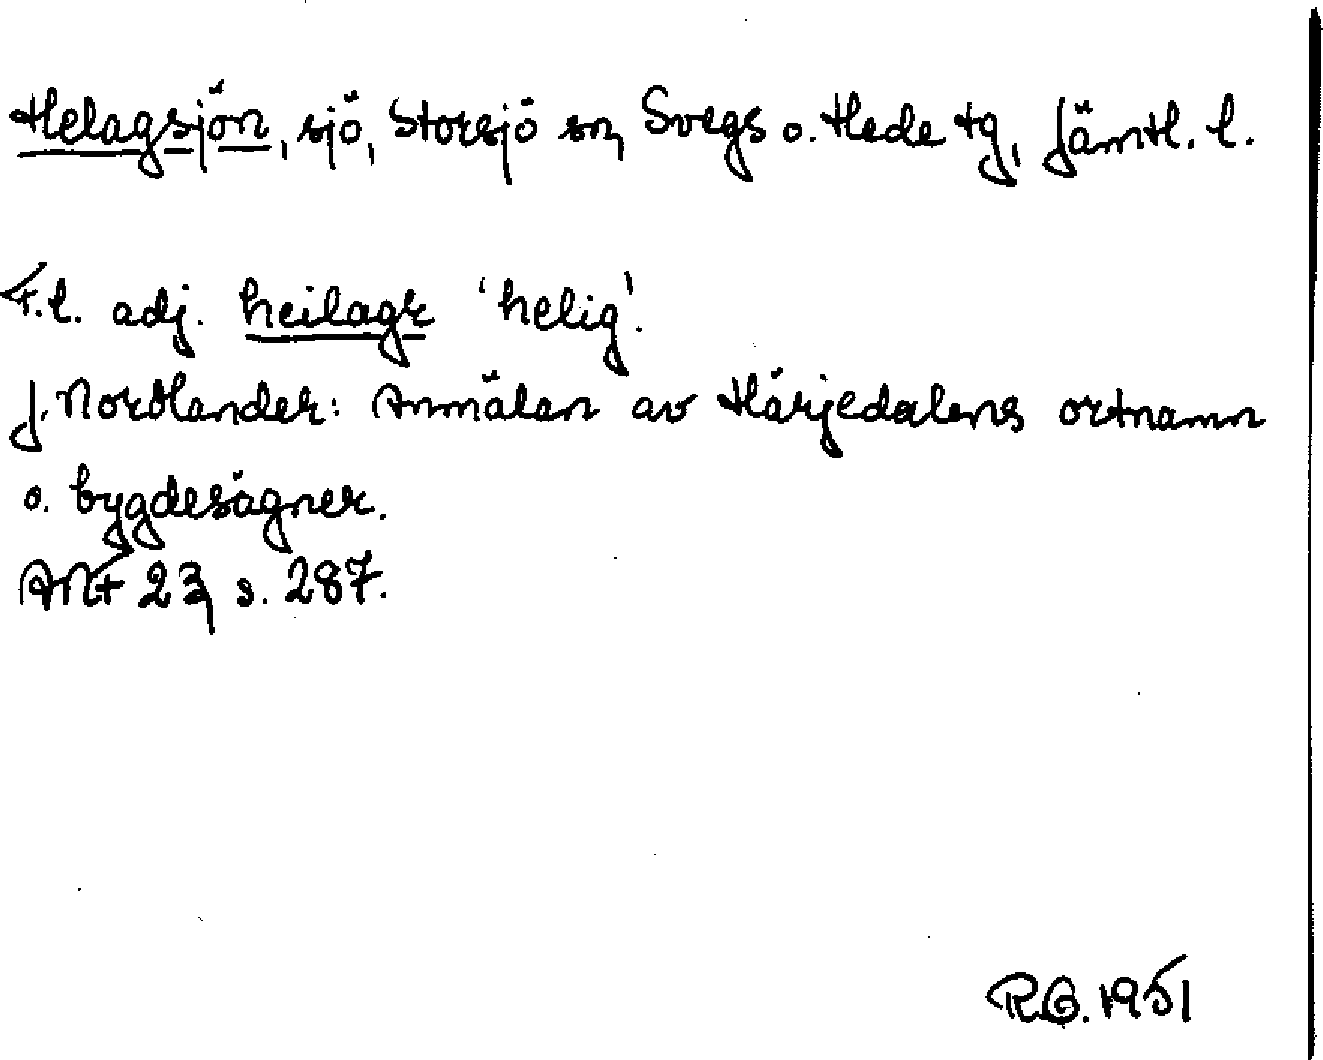 Helagsjön, sjö, Storsjö sn, Svegs o. Hede tg, Jämtl. l.
F.l. adj. heilagr 'helig'.
J. Nordlander: Anmälan av Härjedalens ortnamn
o. bygdesägner.
ANF 23, s. 287.
R.G. 1951